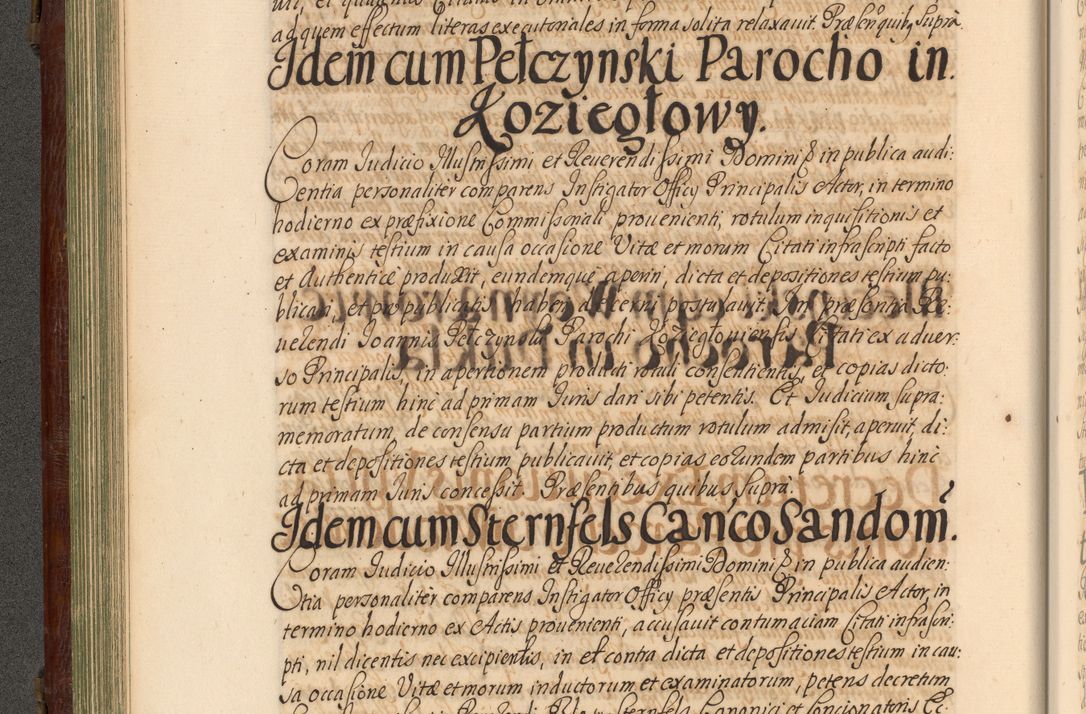 ad quem effectum literas executoriales in forma solita relaxauit. Præsen: quibq supra
Idem cum Pełczynski Parocho in.
Koziegłowy.
Coram Iudicio Illustrissimi et Reuerendissimi Domini in publica audi:
entia personaliter comparens Instigator Officy Principalis Actor, in termino
hodierno ex præfixione Commissoriali prouenienti, rotulum inquisitionis et
examinis testium in causa occasione Vitæ et morum Citati infrascripti facto
et Authenticè produxit, eundemque aperiri, dicta et depositiones testium pu:
blicari, et pro publicatis haberi decerni postulauit. In præsentia Re:
uerendi Ioannis Pełczynski Parochi Koziegłouiensis Citati ex aduer:
so Principalis, in apertionem producti rotuli consentientis, et copias dicto:
rum testium hinc ad primam Iuris dari sibi petentis. Et Iudicium supra:
memoratum, de consensu partium productum rotulum admisit, aperuit, di:
cta et depositiones testium publicauit, et copias eorundem partibus hinc
ad primam Iuris concessit. Præsentibus quibus supra.
Idem cum Sternfels Can̄co Sandom̄.
Coram Iudicio Illustrissimi et Reuerendissimi Domini in publica audien:
tia personaliter comparens Instigator Officy præsentis Principalis Actor, in
termino hodierno ex Actis prouenienti, accusauit contumaciam Citati infrascri:
pti, nil dicentis nec excipientis, in et contra dicta et depositiones testium in cau:
sa occasione Vitæ et morum inductorum et examinatorum, petens decretum